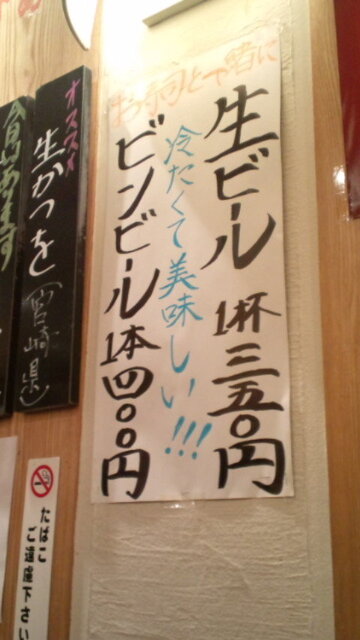 お寿司と一緒に
生ビール 1杯三五〇円
冷たくて美味しい!!!
ビンビール 1本四〇〇円
オススメ
生かつを(宮崎県)
今月あります
たばこ
ご遠慮下さい